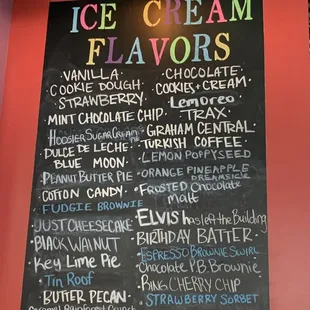 ICE CREAM
FLAVORS
VANILLA
COOKIE DOUGH
STRAWBERRY
MINT CHOCOLATE CHIP
HOOSIER SUGAR CREAM PIE
DULCE DE LECHE
BLUE MOON
PEANUT BUTTER PIE
COTTON CANDY
FUDGIE BROWNIE
JUST CHEESECAKE
BLACK WALNUT
Key Lime Pie
Tin Roof
BUTTER PECAN
Caramel Rainforest Crunch
CHOCOLATE
COOKIES + CREAM
Lemoreo
TRAX
GRAHAM CENTRAL
TURKISH COFFEE
LEMON POPPYSEED
ORANGE PINEAPPLE
DREAMSICLE
FROSTED Chocolate
Malt
ELVIS has left the Building
BIRTHDAY BATTER
ESPRESSO BROWNIE SWIRL
Chocolate P.B. Brownie
BING CHERRY CHIP
STRAWBERRY SORBET